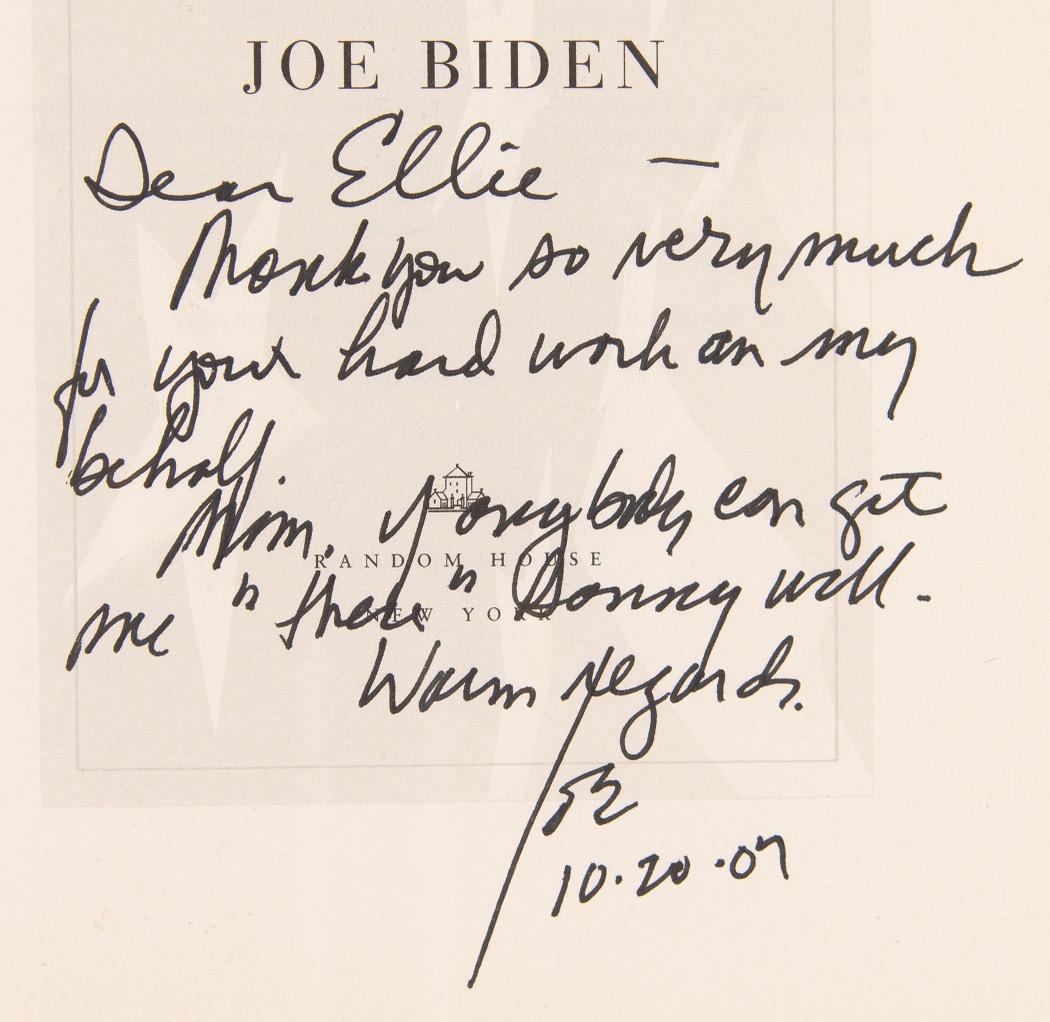 JOE BIDEN
Dear Ellie —
Thank you so very much
for your hard work on my
behalf.
Mim. If anybody can get
RANDOM HOUSE
me "there" Donny will.
NEW YORK
Warm regards.
10.20.07